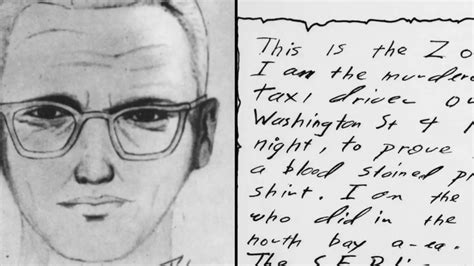 This is the Zo
I am the murdere
taxi driver o
Washington St &
night, to prove
a blood stained p
shirt. I am the
who did in the
north bay area.
The S.F. Poli